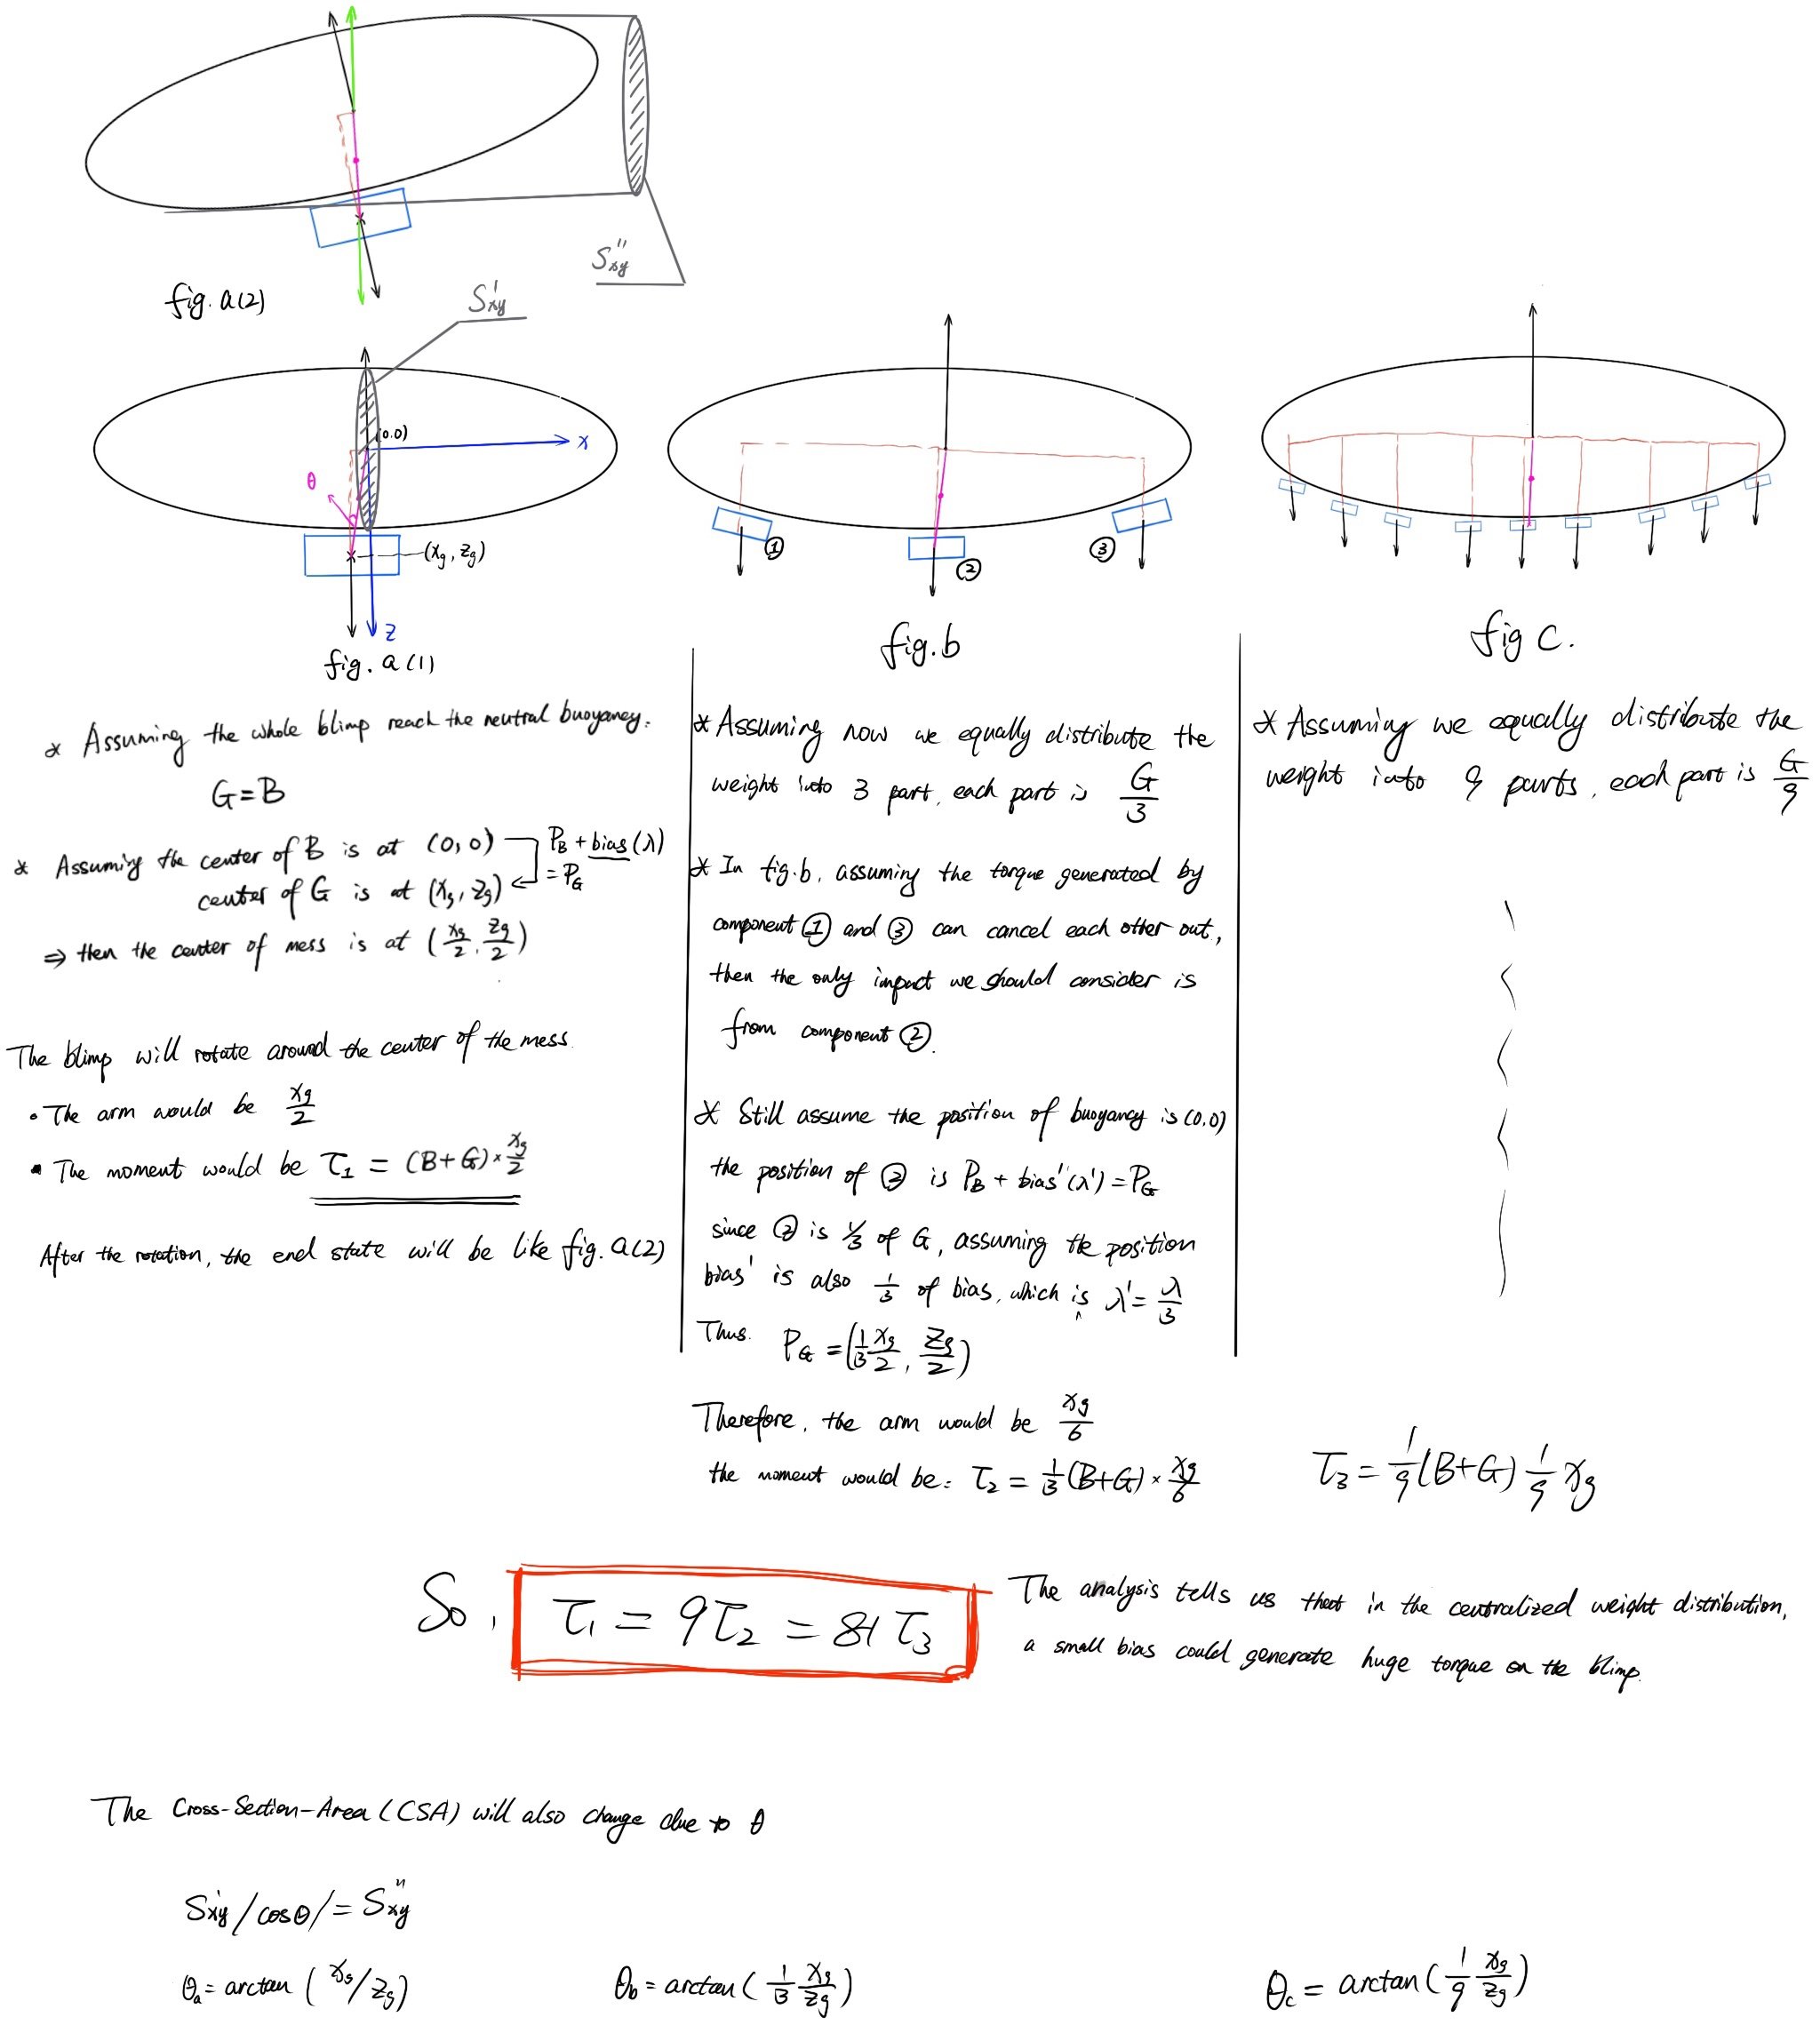 S''xy
fig. a(2)
S'xy
(0.0)
x
θ
(xg, zg)
z
fig. a(1)
* Assuming the whole blimp reach the neutral buoyancy.
G=B
* Assuming the center of B is at (0,0)
center of G is at (xg, zg)
PB + bias(λ)
= PG
⇒ then the center of mess is at (xg/2, zg/2)
The blimp will rotate around the center of the mess.
• The arm would be xg/2
• The moment would be τ1 = (B+G) × xg/2
After the rotation, the end state will be like fig. a(2)
①
②
③
fig. b
* Assuming now we equally distribute the
weight into 3 part, each part is G/3
* In fig.b, assuming the torque generated by
component ① and ③ can cancel each other out,
then the only impact we should consider is
from component ②.
* Still assume the position of buoyancy is (0,0)
the position of ② is PB + bias'(λ') = PG
since ② is 1/3 of G, assuming the position
bias' is also 1/3 of bias, which is λ' = λ/3
Thus. PG = (1/3 xg/2, zg/2)
Therefore, the arm would be xg/6
the moment would be: τ2 = 1/3 (B+G) × xg/6
fig C.
* Assuming we equally distribute the
weight into 9 parts, each part is G/9
τ3 = 1/9 (B+G) 1/9 xg
So, τ1 = 9τ2 = 81τ3
The analysis tells us that in the centralized weight distribution,
a small bias could generate huge torque on the blimp.
The Cross-Section-Area (CSA) will also change due to θ
S'xy /cosθ/ = S''xy
θa = arctan (xg/zg)
θb = arctan (1/3 xg/zg)
θc = arctan (1/9 xg/zg)